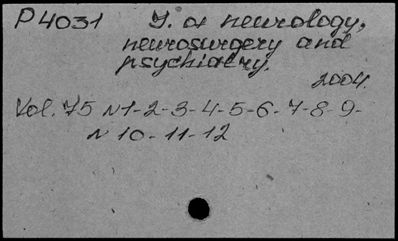 P4031 J. of neurology,
neurosurgery and
psychiatry.
2004.
Vol. 75 N1-2-3-4-5-6-7-8-9-
N 10-11-12